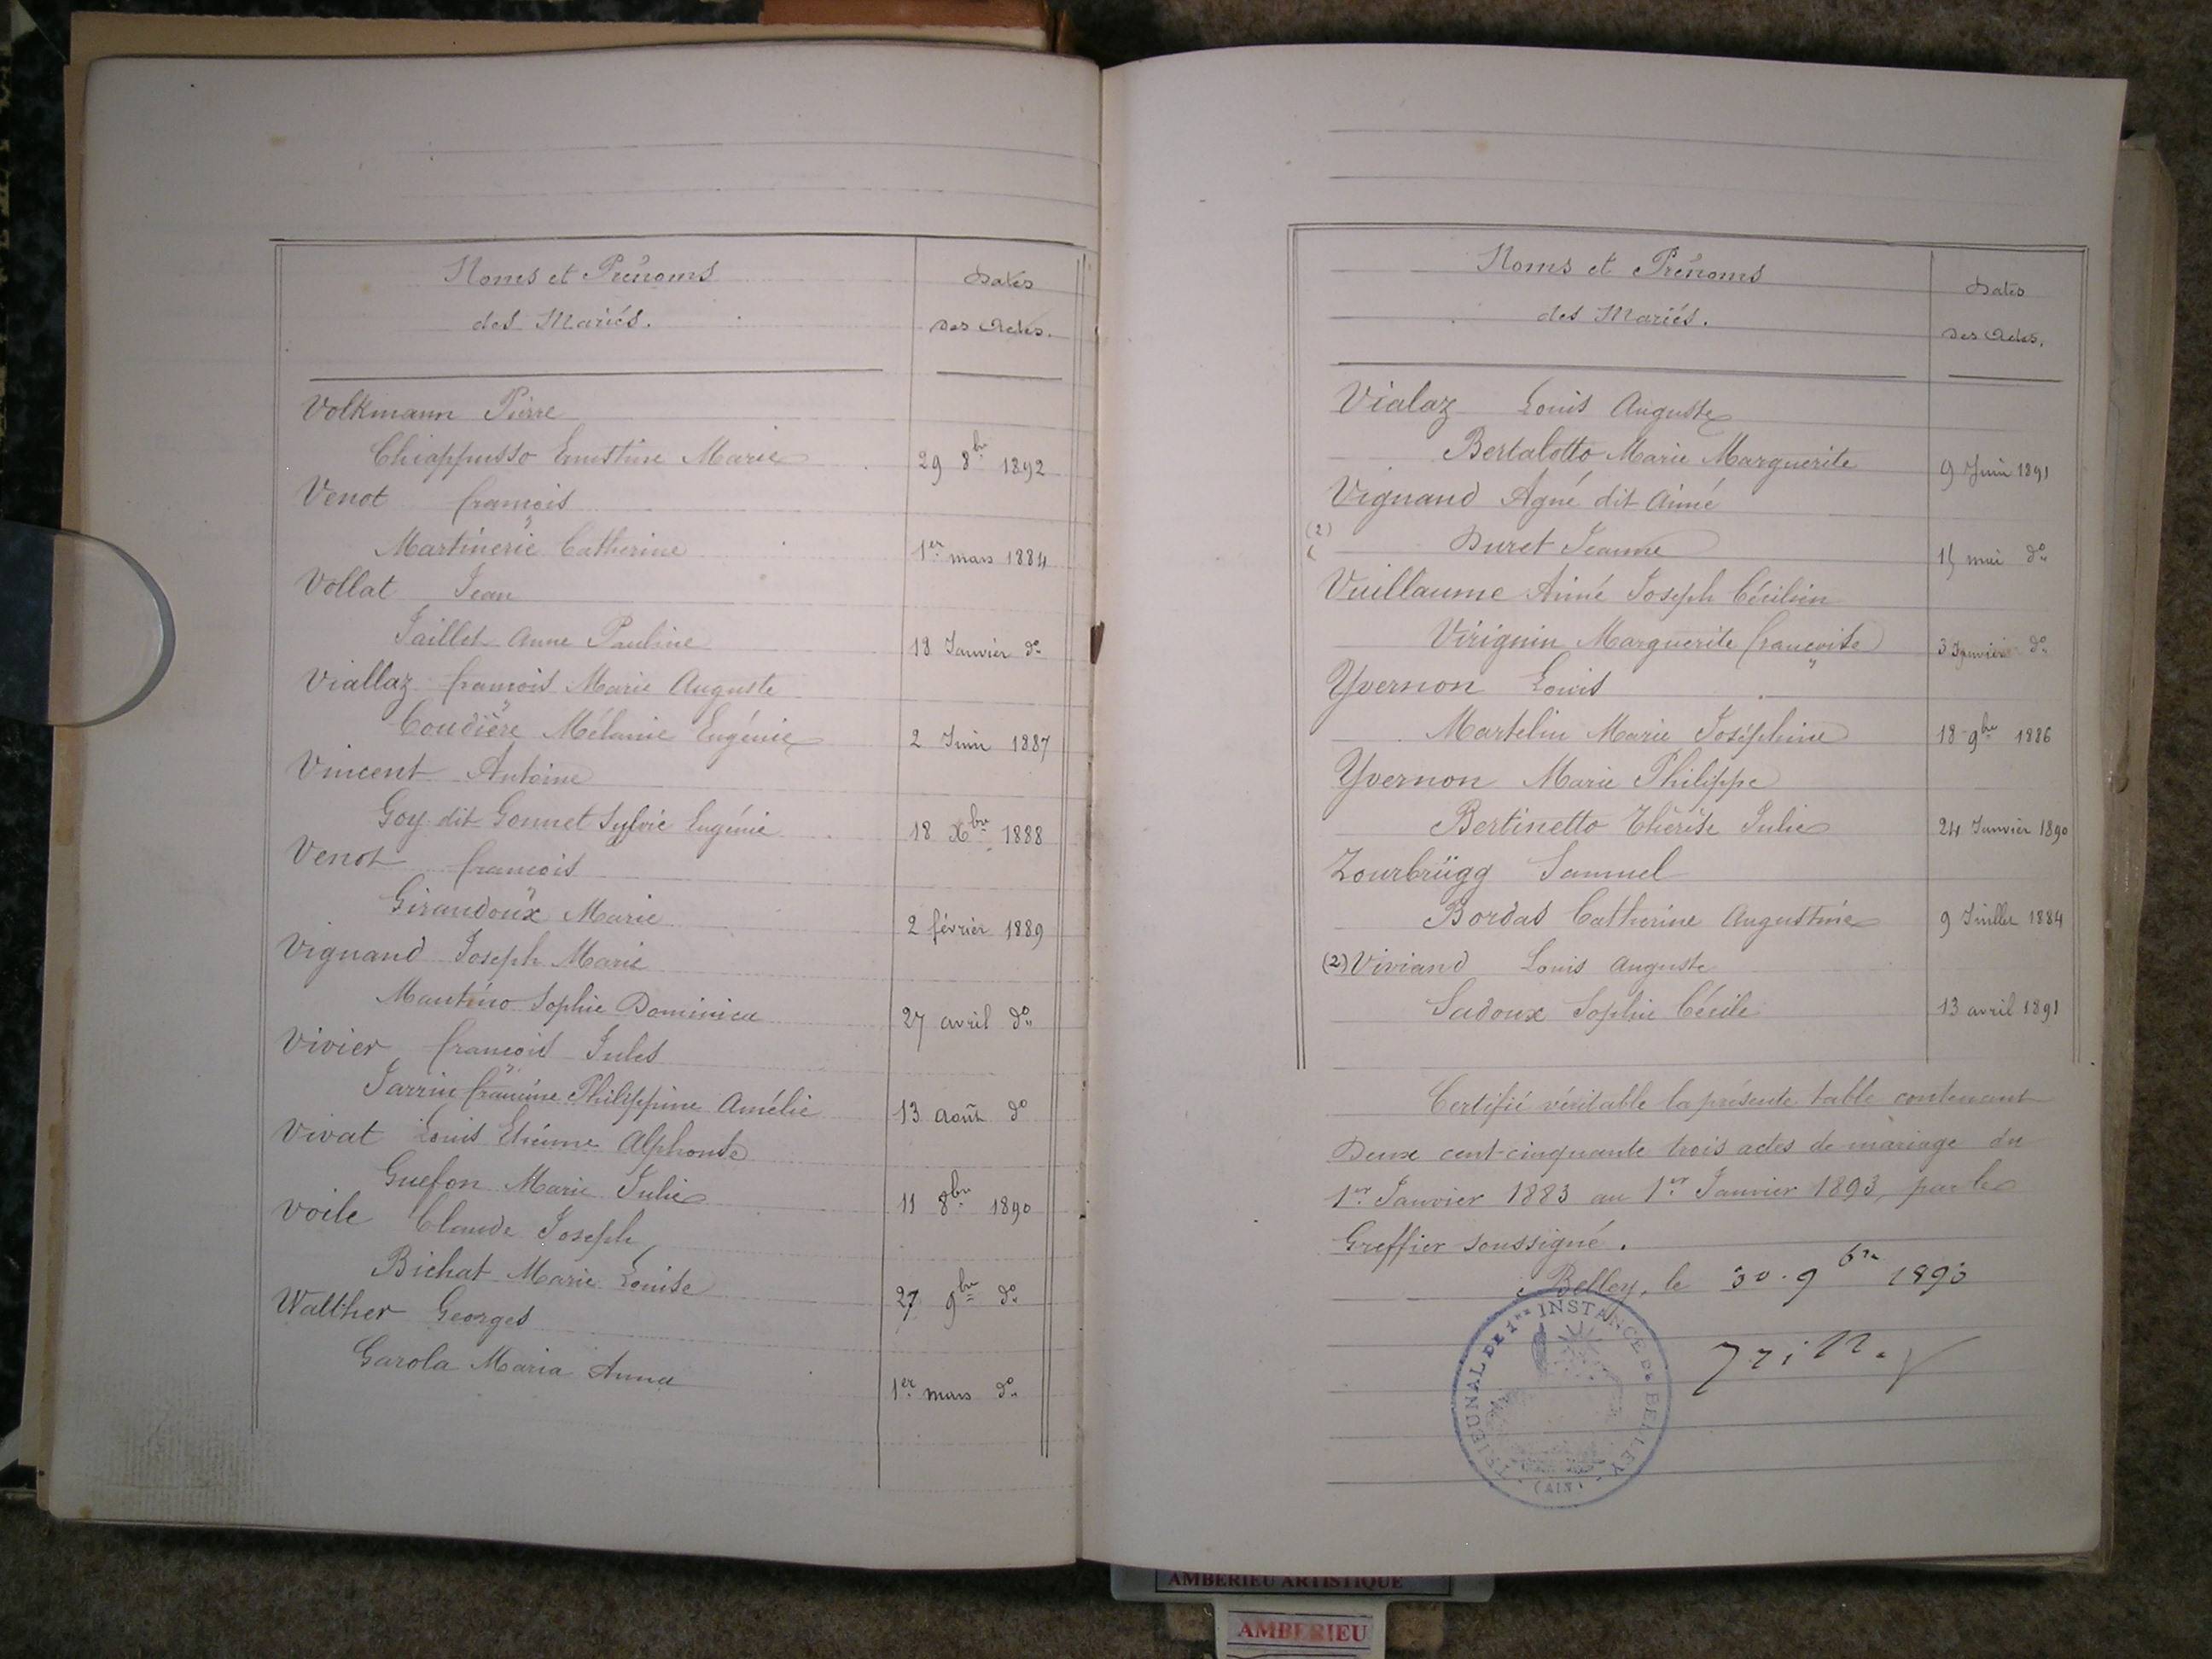 Noms et Prénoms
des Mariés.
Dates
des Actes.
Volkmann Pierre
Chiappusso Ernestine Marie 29 8bre 1892
Venot françois
Martinerie Catherine 1er mars 1884
Vollat Jean
Jaillet Anne Pauline 18 Janvier do
Viallaz françois Marie Auguste
Coudière Mélanie Eugénie 2 Juin 1887
Vincent Antoine
Goy dit Gonnet Sylvie Eugénie 18 Xbre 1888
Venot françois
Giraudoux Marie 2 février 1889
Vignand Joseph Marie
Mantino Sophie Dominica 27 avril do
Vivier françois Jules
Jarrin françine Philippine Amélie 13 août do
Vivat Louis Etienne Alphonse
Guefon Marie Julie 11 8bre 1890
Voile Claude Joseph
Bichat Marie Louise 27 9bre do
Walther Georges
Garola Maria Anna 1er mars do
Noms et Prénoms
des Mariés.
Dates
des Actes.
Vialaz Louis Auguste
Bertalotto Marie Marguerite 9 Juin 1891
Vignand Agné dit Aimé
(2) Duret Jeanne 15 mai do
Vuillaume Aimé Joseph Cécilien
Virignin Marguerite françoise 3 Janvier do
Yvernon Louis
Martelin Marie Joséphine 18 9bre 1886
Yvernon Marie Philippe
Bertinetto Thérèse Julie 24 Janvier 1890
Zourbrügg Samuel
Bordas Catherine Augustine 9 Juillet 1884
(2) Viviand Louis Auguste
Sadoux Sophie Cécile 13 avril 1891
Certifié véritable la présente table contenant
Deux cent cinquante trois actes de mariage du
1er Janvier 1883 au 1er Janvier 1893, par le
Greffier soussigné.
Belley, le 30 9bre 1893
TRIBUNAL DE 1re INSTANCE DE BELLEY
(AIN)
AMBERIEU ARTISTIQUE
AMBERIEU